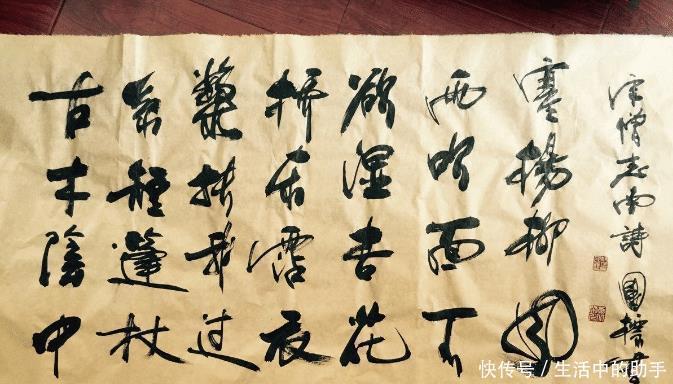 古木陰中
系短蓬杖
藜扶我过
桥东霑衣
欲湿杏花
雨吹面不
寒楊柳風
宋僧志南诗
快传号/生活中的助手